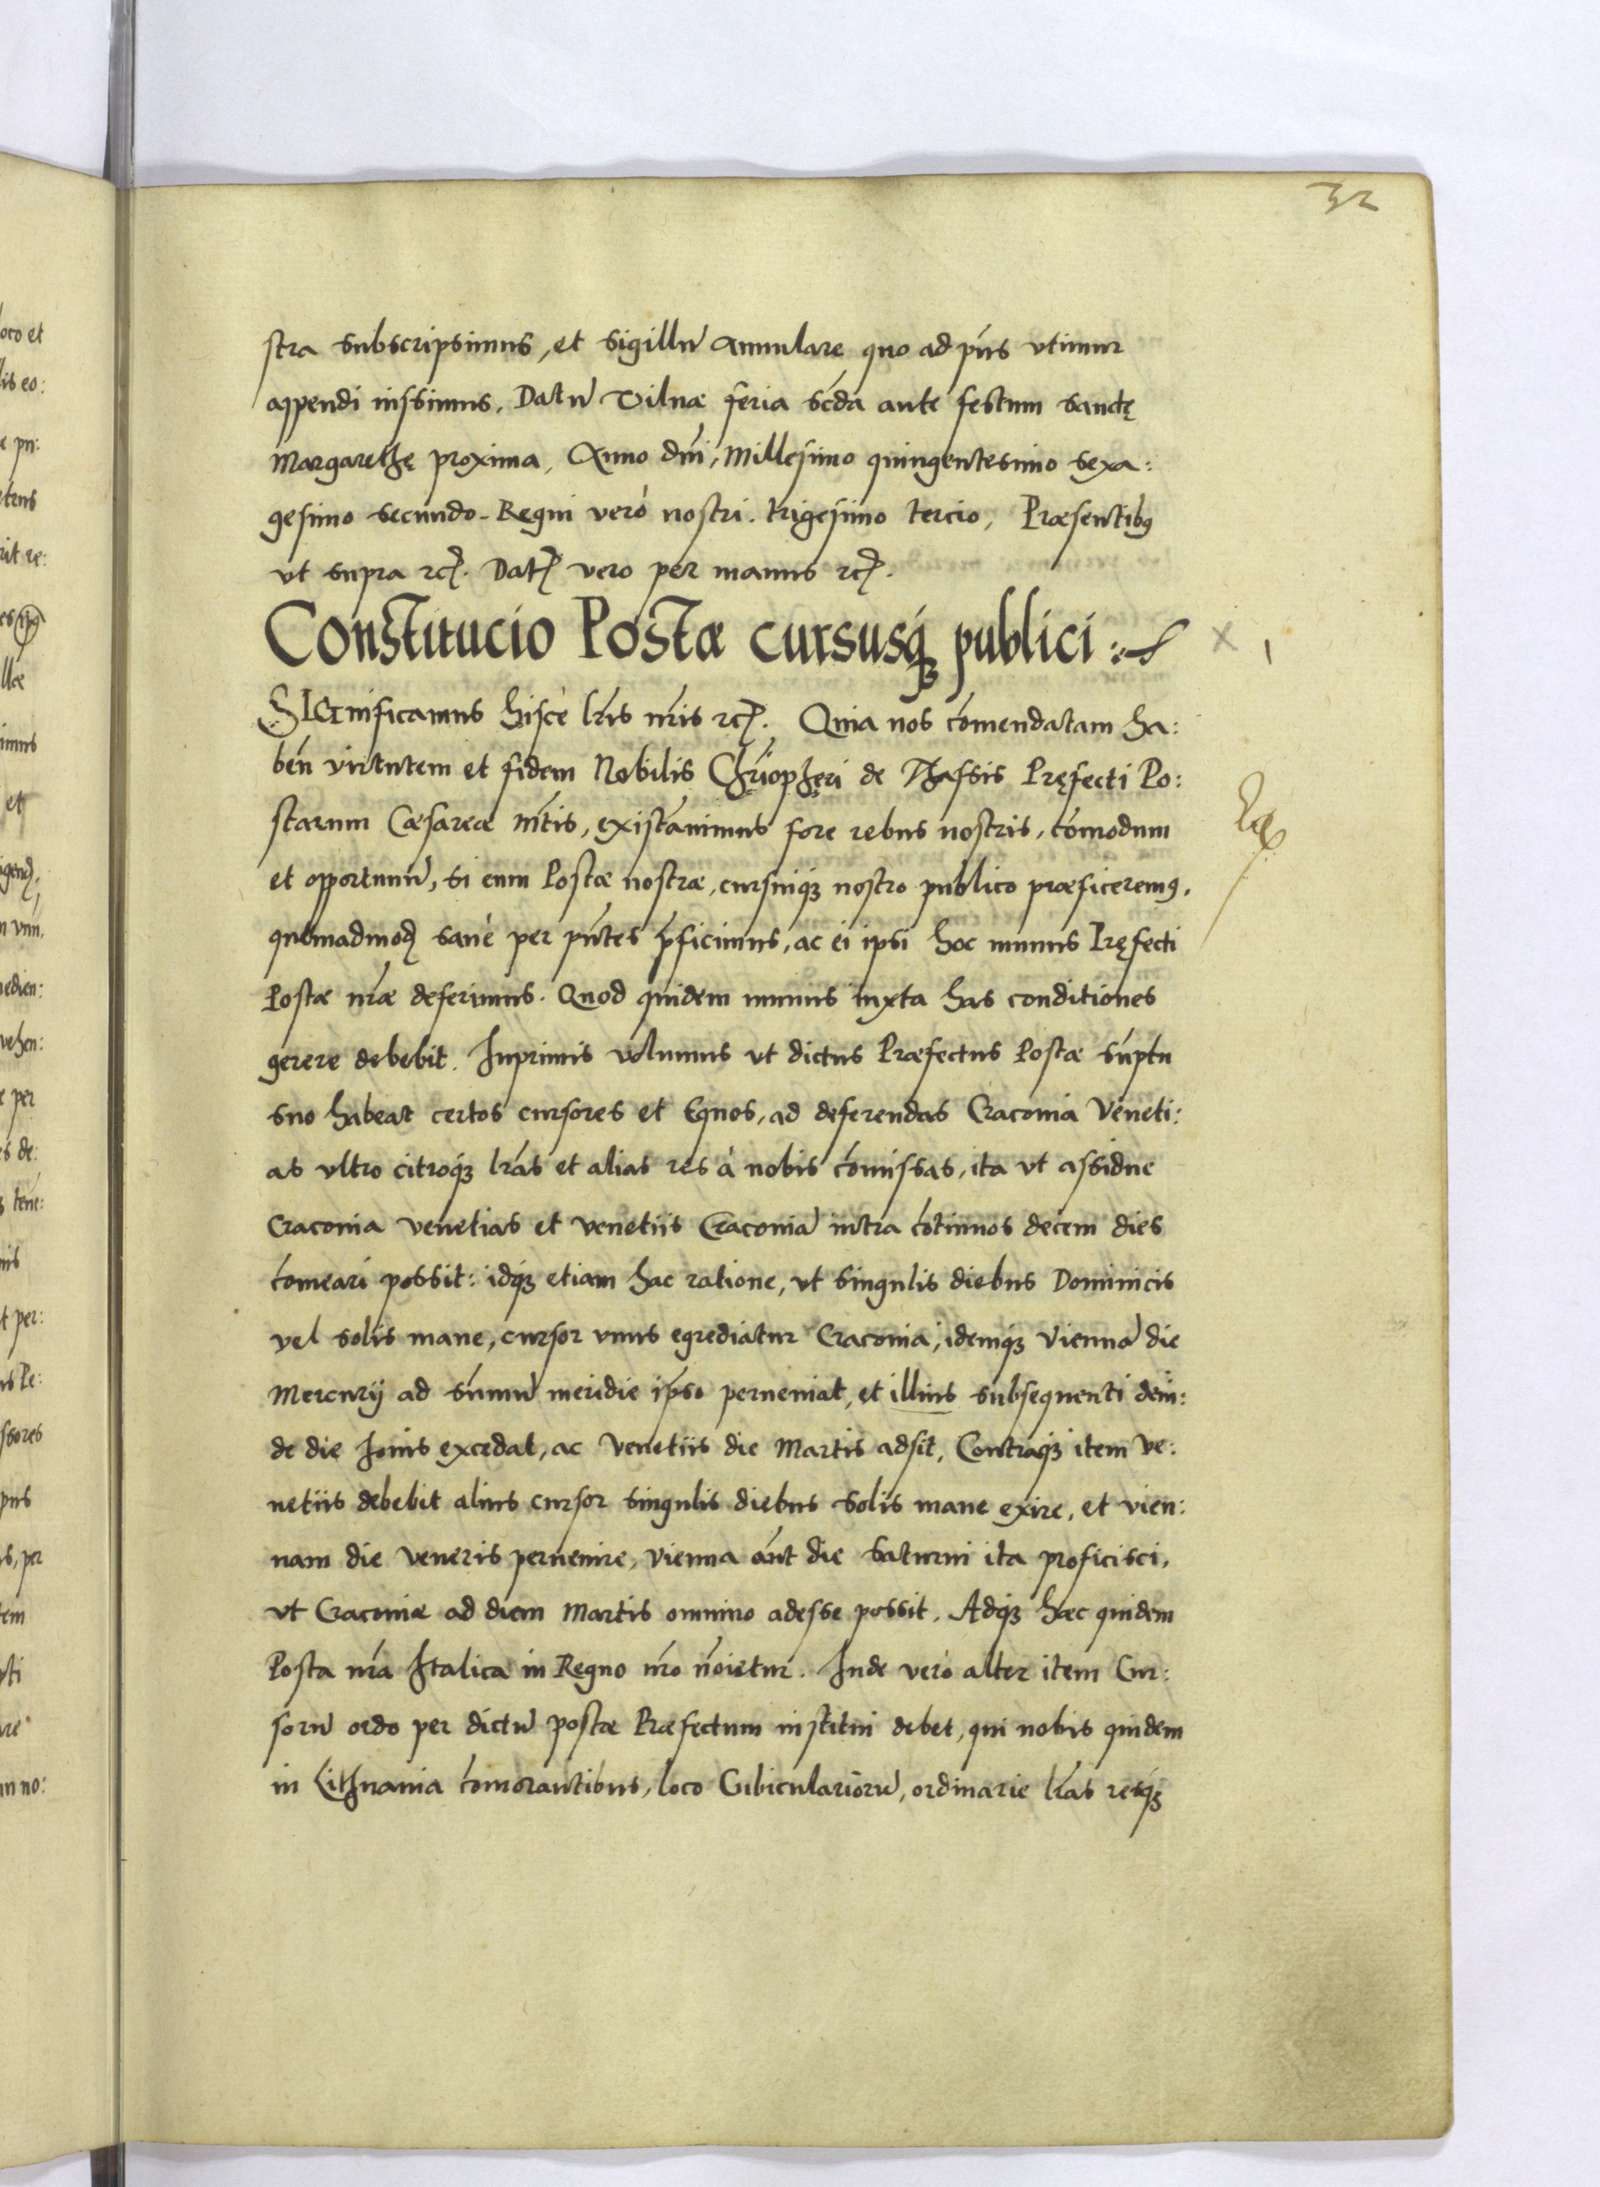 32
stra subscripsimus, et sigillũ Annulare quo ad pñs vtimur
appendi iussimus. Datũ Vilnæ feria scđa ante festum sanctę
Margarethę proxima, Anno dñi, Millesimo quingentesimo sexa:
gesimo secundo. Regni verò nostri. trigesimo tercio, Præsentibꝰ
vt supra ꝛcꝭ. Datꝭ vero per manus ꝛcꝭ.
Constitucio Postæ cursusq́ꝫ publici
SIGnificamus hisce lr̃is nr̃is ꝛcꝭ. Quia nos com̃endatam ha:
beñ virtutem et fidem Nobilis Chr̃iopheri de Thassis Pręfecti Po:
starum Cæsareæ M̃tis, existimauimus fore rebus nostris, com̃odum
et opportunũ, si eum Postæ nostræ, cursuiq́ꝫ nostro publico præficeremꝰ,
quemadmodꝫ sanè per pñtes p̃ficimus, ac ei ipsi hoc munus Pręfecti
Postæ nr̃æ deferimus. Quod quidem munus iuxta has conditiones
gerere debebit. Inprimis volumus vt dictus Præfectus Postæ sũptu
suo habeat certos cursores et Equos, ad deferendas Cracouia Veneti:
as vltro citroq́ꝫ lr̃as et alias res à nobis com̃issas, ita vt assidue
Cracouia Venetias et Venetiis Cracouiã intra cõtinuos decem dies
com̃eari possit: idq́ꝫ etiam hac ratione, vt singulis diebus Dominicis
vel solis mane, cursor vnus egrediatur Cracouia, idemq́ꝫ Viennã die
Mercurij ad sum̃ũ meridie ip̃so perueniat, et illius subsequenti dein:
de die Iouis excedat, ac Venetiis die Martis adsit, Contraq́ꝫ item Ve:
netiis debebit alius cursor singulis diebus solis mane exire, et vien:
nam die Veneris peruenire, vienna aũt die saturni ita proficisci,
vt Cracouiæ ad diem Martis omnino adesse possit. Adq́ꝫ hæc quidem
Posta nr̃a Italica in Regno nr̃o nõietur. Inde verò alter item Cur:
sorũ ordo per dictũ postæ Præfectum institui debet, qui nobis quidem
in Lithuania com̃orantibus, loco Cubiculariorũ, ordinarie lr̃as resq́ꝫ